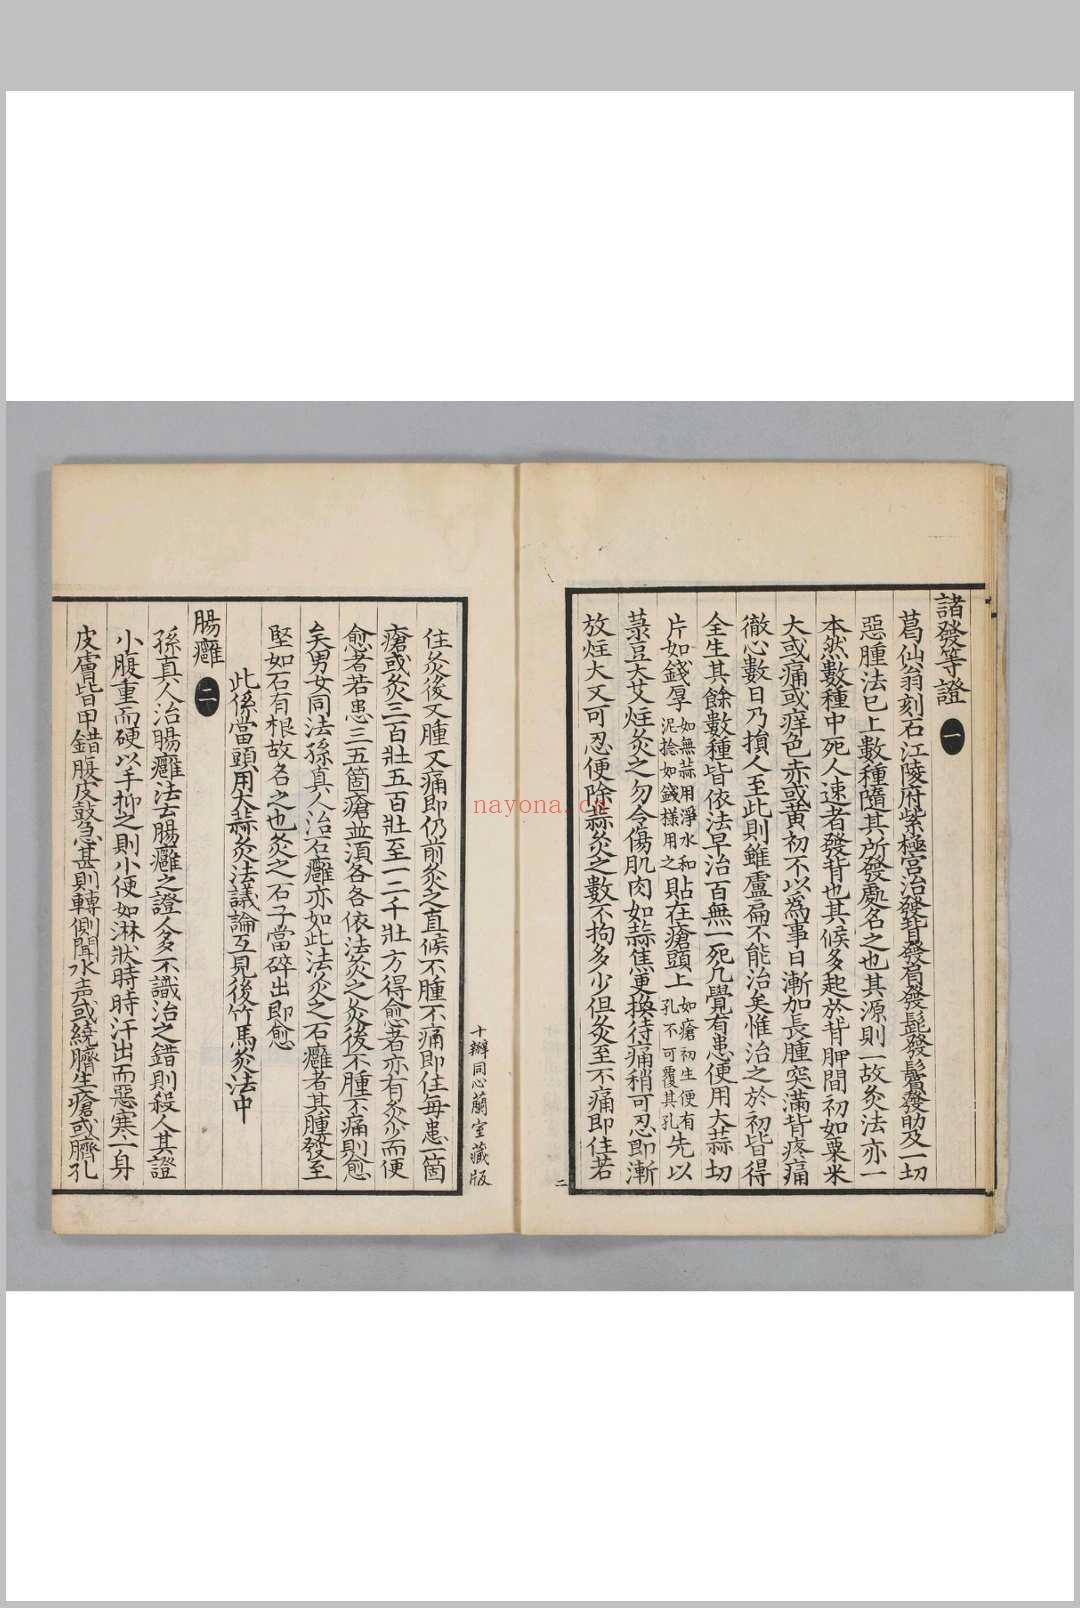 諸發等證 一
葛仙翁刻石江陵府紫極宮治發背發肩發髭發鬢發肋及一切
惡腫法已上數種隨其所發處名之也其源則一故灸法亦一
本然數種中死人速者發背也其候多起於背胛間初如粟米
大或痛或痒色赤或黃初不以爲事日漸加長腫突滿背疼痛
徹心數日乃損人至此則雖盧扁不能治矣惟治之於初皆得
全生其餘數種皆依法早治百無一死凡覺有患便用大蒜切
片如錢厚如無蒜用淨水和泥捻如錢樣用之貼在瘡頭上如瘡初生便有孔不可覆其孔先以
菉豆大艾炷灸之勿令傷肌肉如蒜焦更換待痛稍可忍即漸
放炷大又可忍便除蒜灸之數不拘多少但灸至不痛即住若
二
十瓣同心蘭室藏版
住灸後又腫又痛即仍前灸之直候不腫不痛即住每患一箇
瘡或灸三百壯五百壯至一二千壯方得愈者亦有灸少而便
愈者若患三五箇瘡並須各各依法灸之灸後不腫不痛則愈
矣男女同法孫真人治石癰亦如此法灸之石癰者其腫發至
堅如石有根故名之也灸之石子當碎出即愈
此係當頭用大蒜灸法議論互見後竹馬灸法中
腸癰 二
孫真人治腸癰法云腸癰之證人多不識治之錯則殺人其證
小腹重而硬以手抑之則小便如淋狀時時汗出而惡寒一身
皮膚皆甲錯腹皮鼓急甚則轉側聞水声或繞臍生瘡或臍孔
nayona.cn